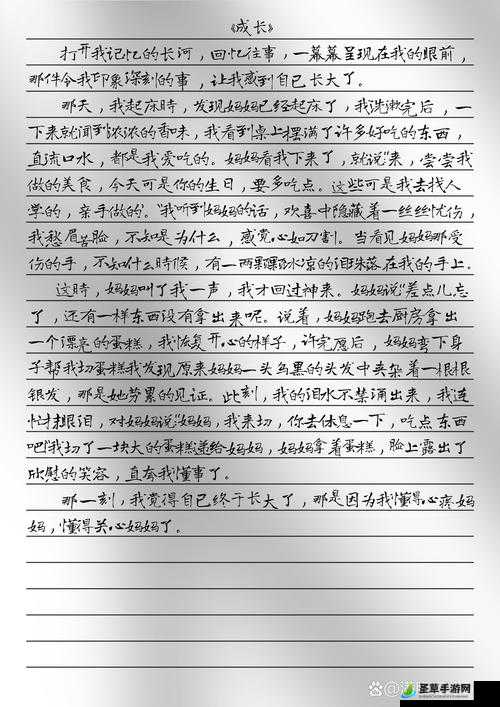 《成长》
打开我记忆的长河，回忆往事，一幕幕呈现在我的眼前，
那件令我印象深刻的事，让我感到自己长大了。
那天，我起床時，发现妈妈已经起床了，我洗漱完后，一
下来就闻到浓浓的香味，我看到桌上摆满了许多好吃的东西，
直流口水，都是我爱吃的。妈妈看我下来了，就说"来，尝尝我
做的美食，今天可是你的生日，要多吃点。这些可是我去找人
学的，亲手做的"。"我听到妈妈的话，欢喜中隐藏着一丝丝忧伤，
我愁眉苦脸，不知是为什么，感觉心如刀割。当看见妈妈那受
伤的手，不知什么時候，有一两颗颗冰凉的泪珠落在我的手上。
这時，妈妈叫了我一声，我才回过神来。妈妈说"差点儿忘
了，还有一样东西没有拿出来呢。说着，妈妈跑去厨房拿出
一个漂亮的蛋糕，我恢复开心的样子，许完愿后，妈妈弯下身
子帮我切蛋糕我发现原来妈妈一头乌黑的头发中夹杂着一根根
银发，那是她劳累的见证。此刻，我的泪水不禁涌出来，我连
忙抹眼泪，对妈妈说"妈妈，我来切，你去休息一下，吃点东西
吧"我切了一块大的蛋糕递给妈妈，妈妈拿着蛋糕，脸上露出了
欣慰的笑容，直夸我懂事了。
那一刻，我觉得自己终于长大了，那是因为我懂得心疼妈
妈，懂得关心妈妈了。
圣草手游网